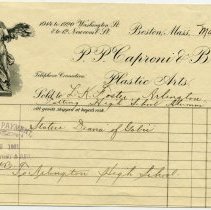 1914 to 1920 Washington St.
8 to 12 Newcomb St.
Boston, Mass.
P. P. Caproni & B
Telephone Connection
Plastic Arts.
Sold to L. K. Foster Arlington
High School
All goods shipped at buyer's risk.
Statue Diana of Gabii
PAYMEN
To Arlington High School